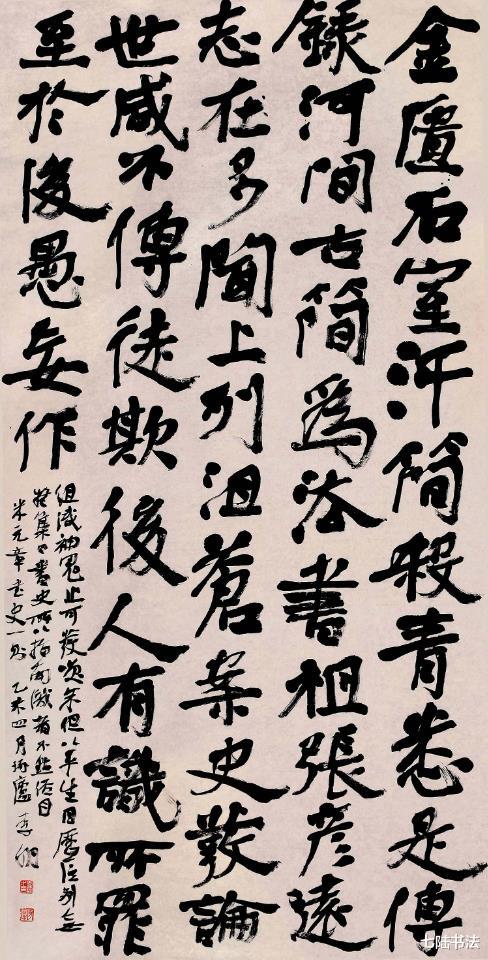 金匱石室汗簡殺青悉是傳
錄河間古簡爲法書祖張彦遠
志在多聞上列沮蒼案史發論
世咸不傳徒欺後人有識所罪
至於後愚妄作
組織神鬼止可發笑余但以平生目歷區別無
疑集曰書史所以指南識者不點俗目
米元章書史一則 乙未四月 廬 李
七陆书法